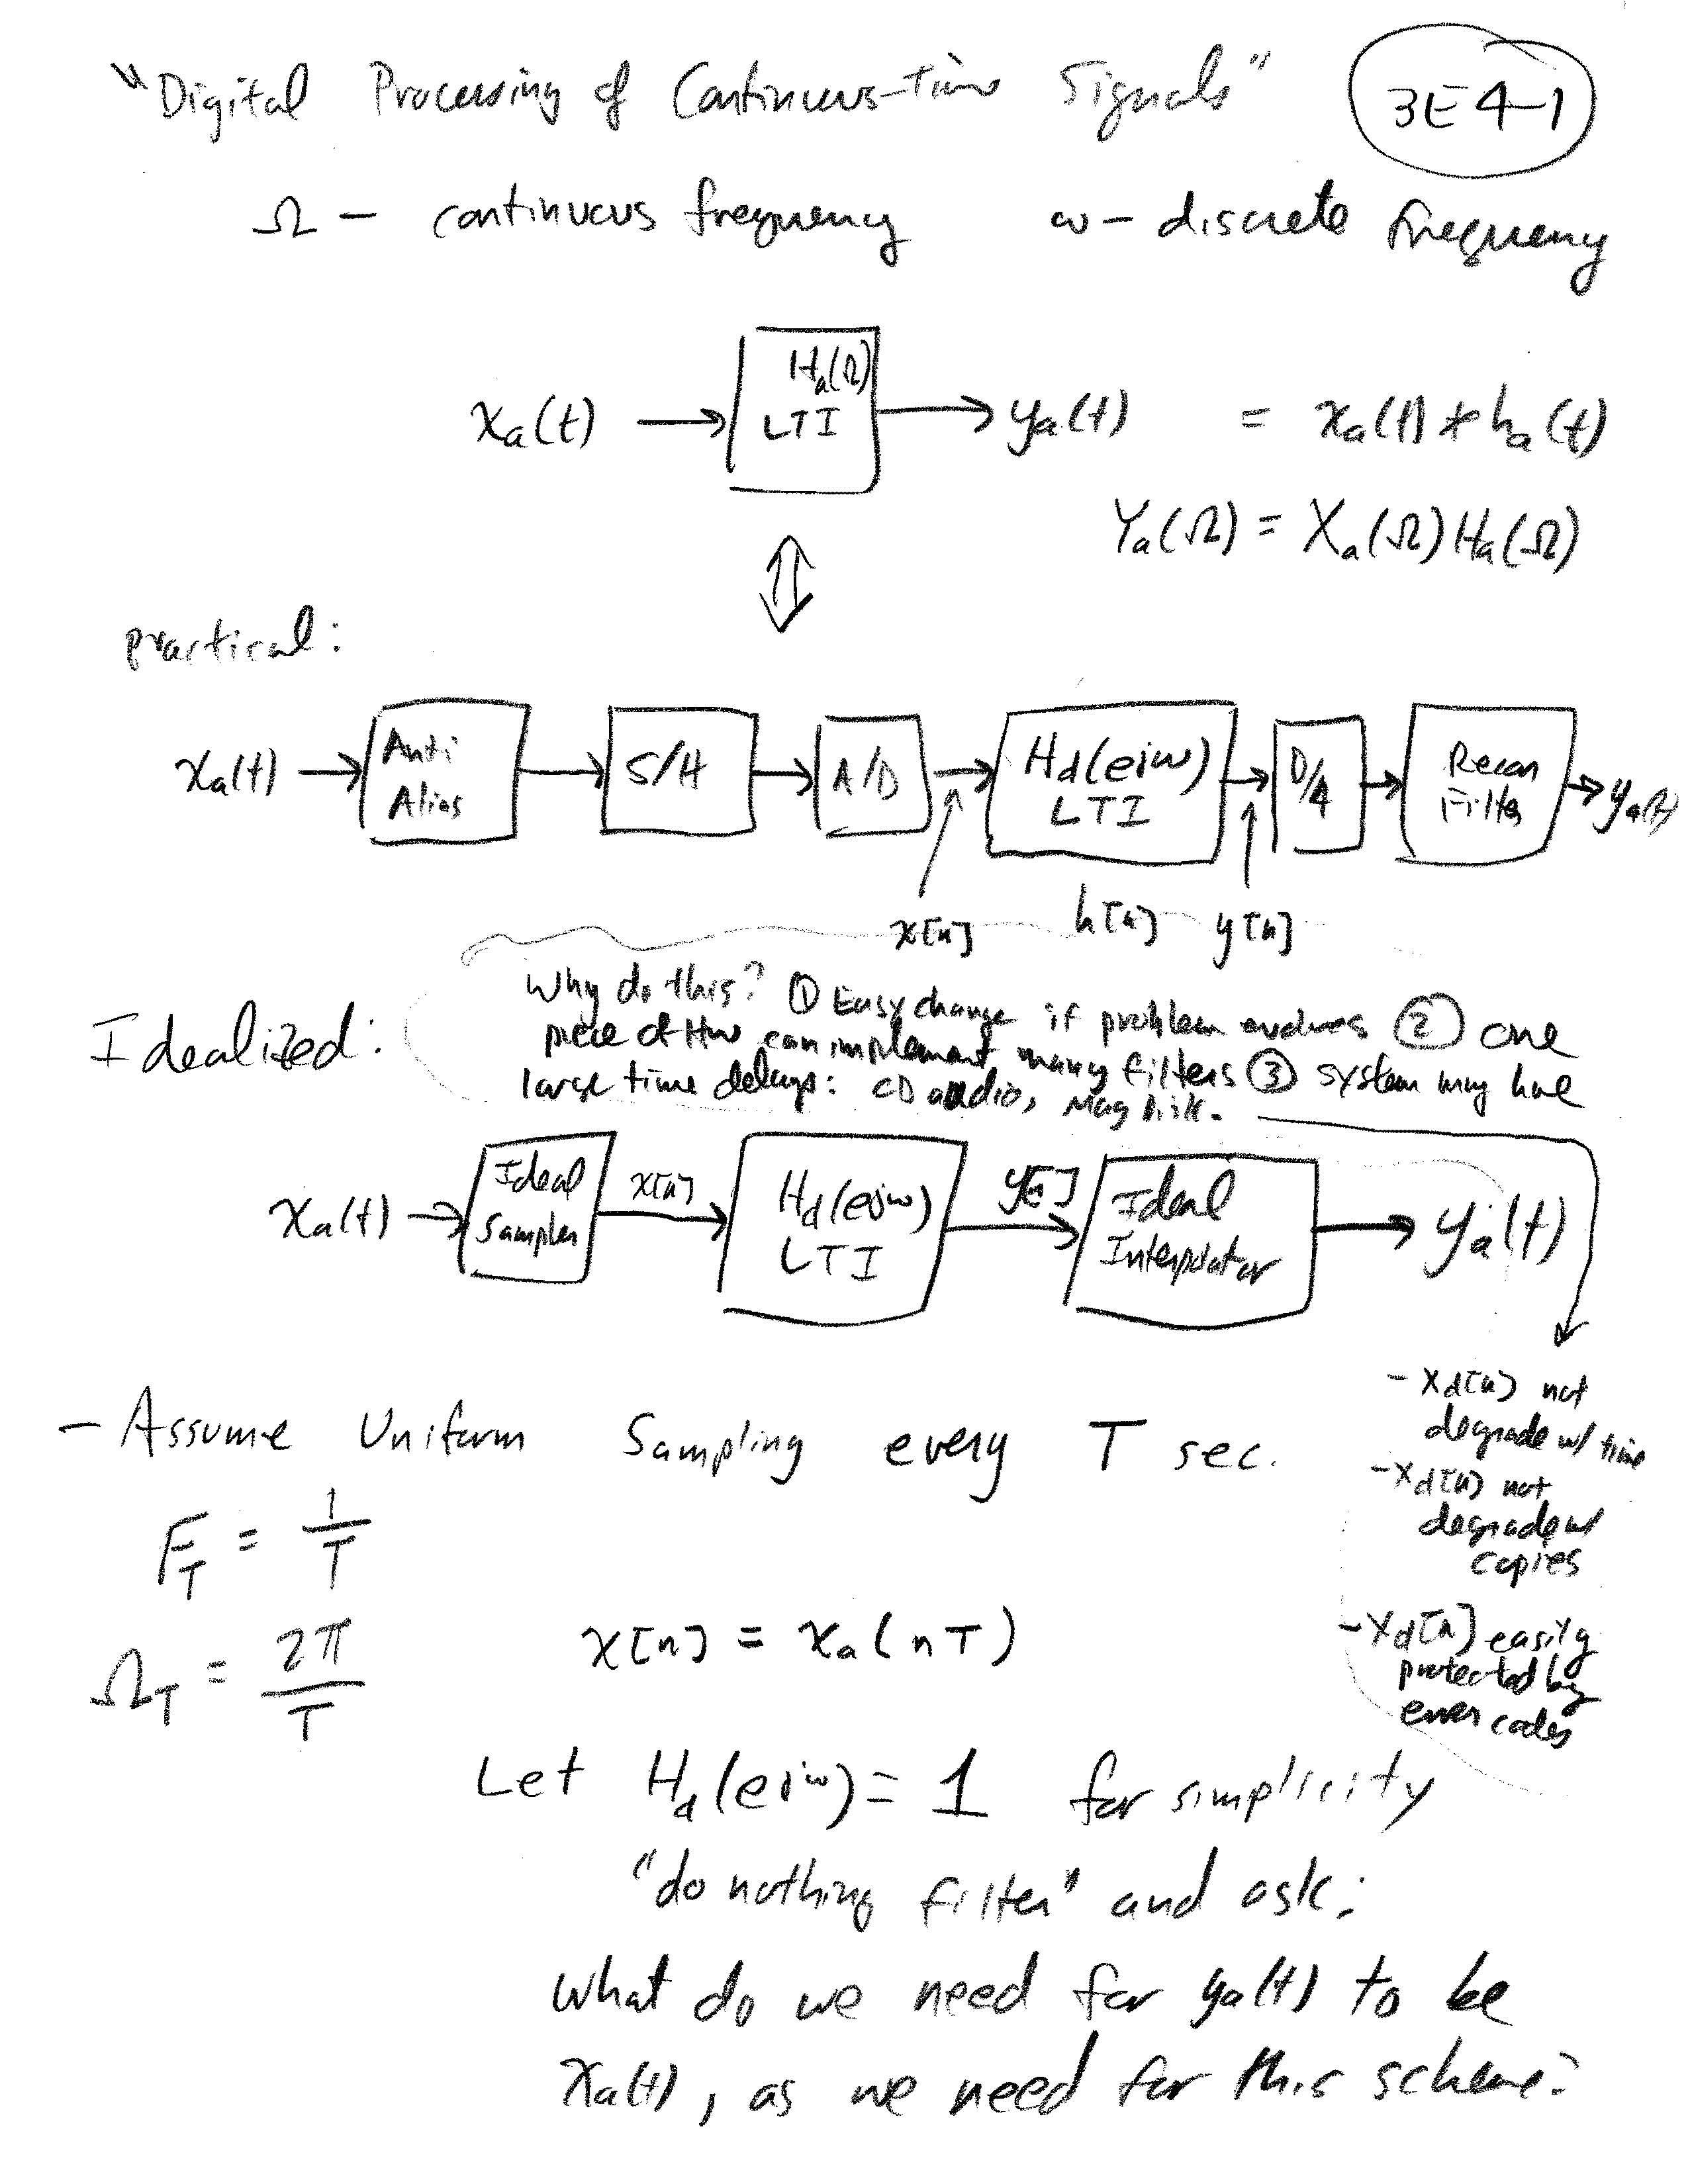 "Digital Processing of Continuous-Time Signals" 3E4-1
Ω – continuous frequency ω – discrete frequency
Ha(Ω)
xa(t) LTI ya(t) = xa(t) * ha(t)
Ya(Ω) = Xa(Ω) Ha(Ω)
practical:
xa(t) Anti Alias S/H A/D Hd(ejω) LTI D/A Recon Filter ya(t)
x[n] h[n] y[n]
Why do this? ① Easy change if problem evolves ② one
piece of HW can implement many filters ③ system may have
large time delays: CD audio, Mag Disk.
Idealized:
xa(t) Ideal Sampler x[n] Hd(ejω) LTI y[n] Ideal Interpolator ya(t)
- xd[n] not
degrade w/ time
- xd[n] not
degrade w/
copies
- xd[n] easily
protected by
error codes
- Assume Uniform Sampling every T sec.
FT = 1/T
x[n] = xa(nT)
ΩT = 2π/T
Let Hd(ejω) = 1 for simplicity
"do nothing filter" and ask:
what do we need for ya(t) to be
xa(t), as we need for this scheme?